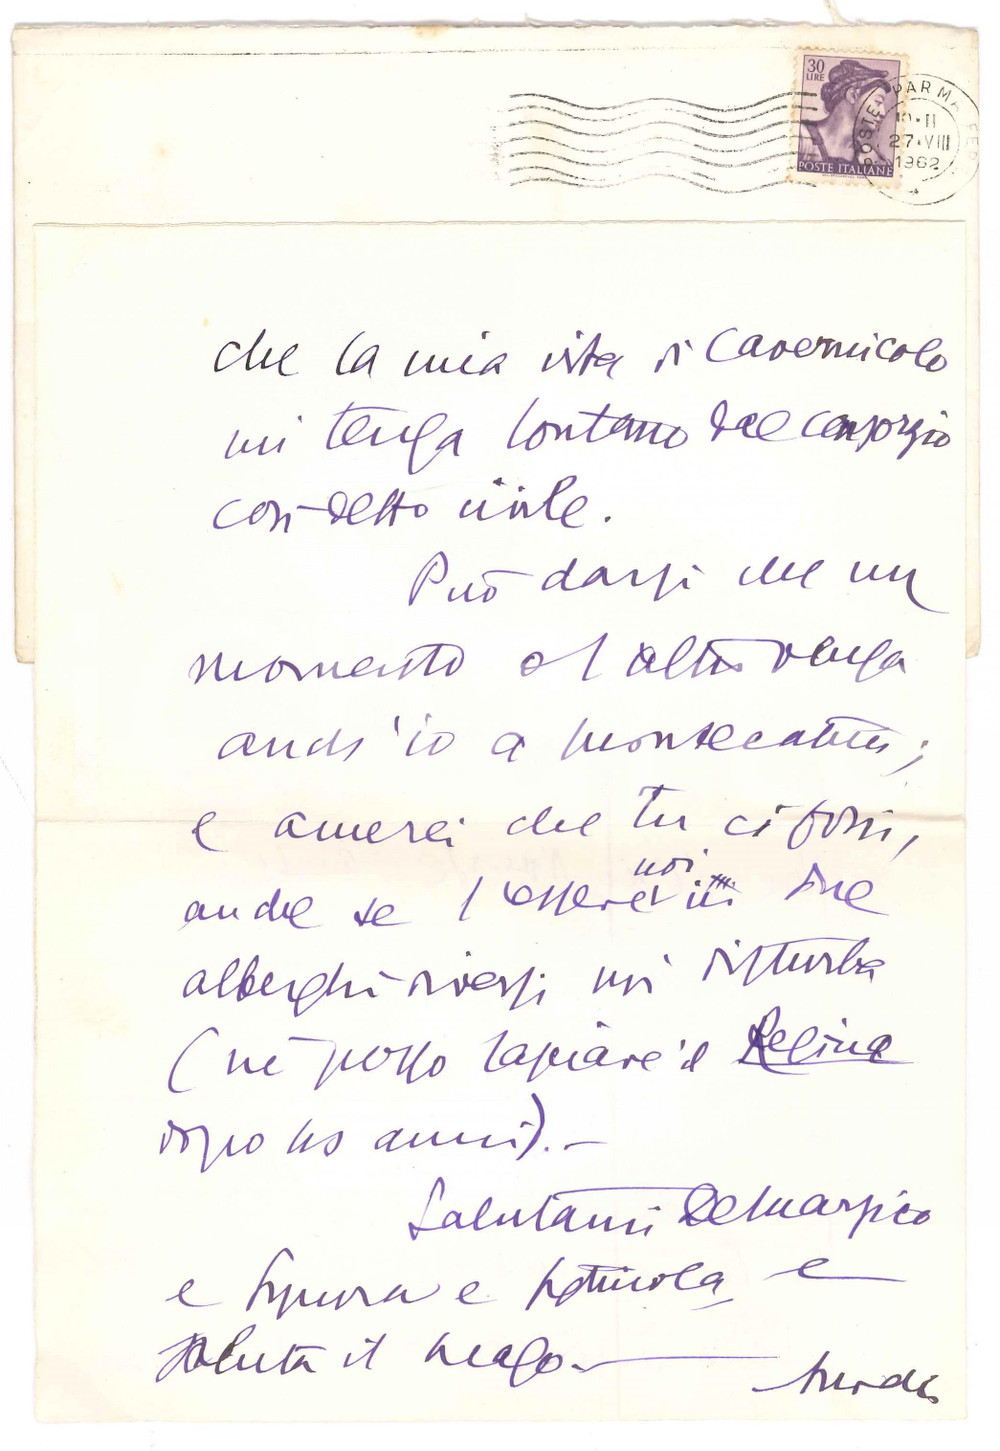 30
LIRE
POSTE ITALIANE
POSTE PARMA FER
27·VIII
1962
che la mia vita di cavernicolo
mi tenga lontano dal consorzio
così-detto civile.
Può darsi che un
momento o l'altro venga
anch'io a Montecatini;
e amerei che tu ci fossi,
anche se l'essere noi in due
alberghi diversi mi disturba
(né posso lasciare il Regina
dopo anni). -
Salutami Delmarsico
e Signora e e
saluta il Mago -